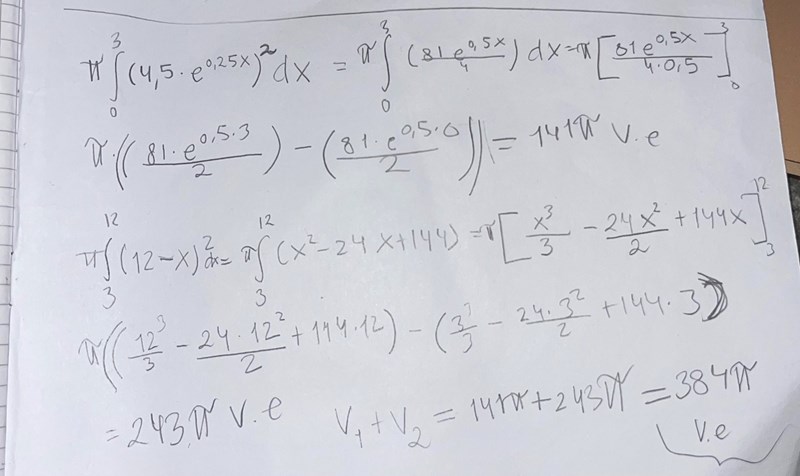 π∫₀³(4,5·e^0,25x)²dx = π∫₀³(81e^0,5x/4)dx=π[81e^0,5x/4·0,5]₀³
π·((81·e^0,5·3/2)-(81·e^0,5·0/2))=141π v.e
π∫₃¹²(12-x)²dx=π∫₃¹²(x²-24x+144)=π[x³/3-24x²/2+144x]₃¹²
π((12³/3-24·12²/2+144·12)-(3³/3-24·3²/2+144·3))
=243π v.e V₁+V₂=141π+243π=384π
v.e